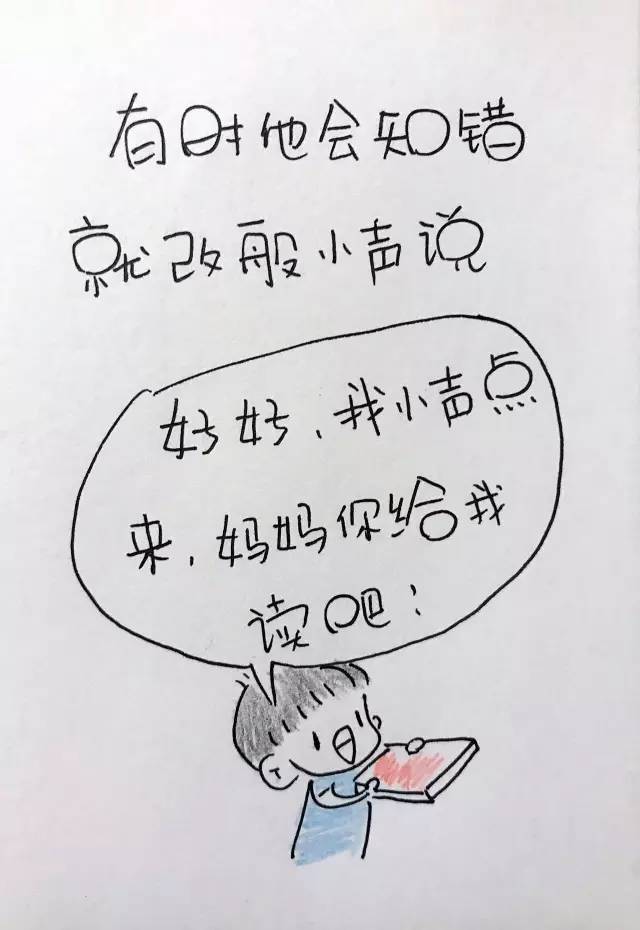 有时他会知错
就改般小声说
好好、我小声点
来，妈妈你给我
读吧！